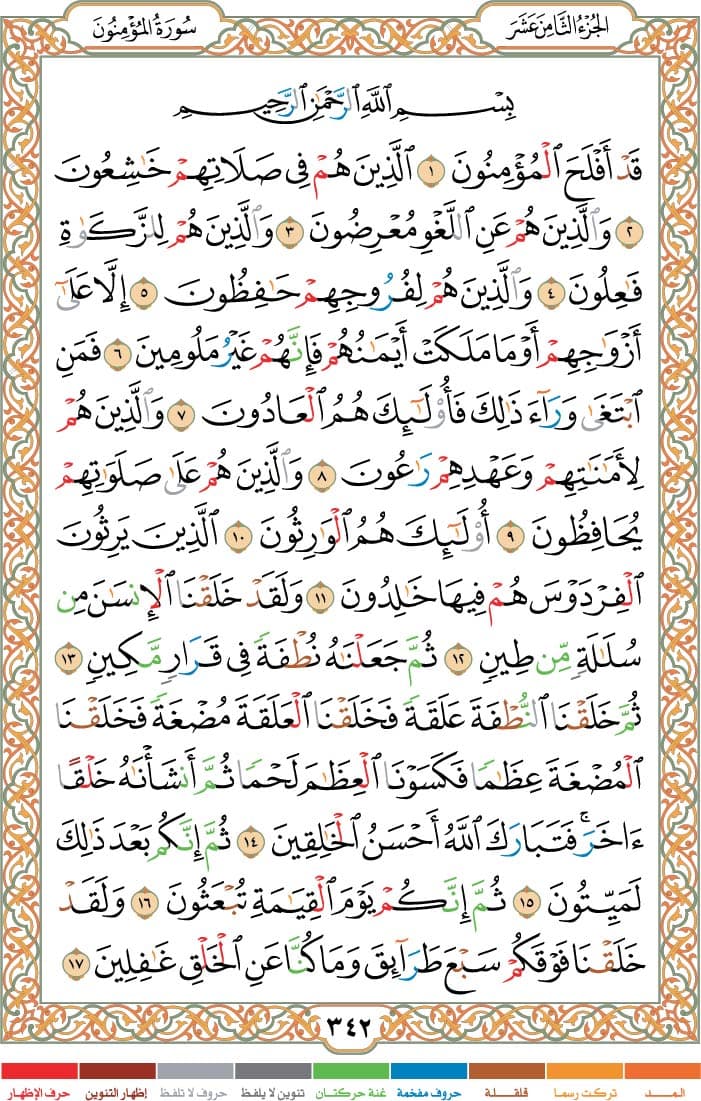 الجزء الثامن عشر
سورة المؤمنون
بِسْمِ اللَّهِ الرَّحْمَٰنِ الرَّحِيمِ
قَدْ أَفْلَحَ الْمُؤْمِنُونَ ١ الَّذِينَ هُمْ فِي صَلَاتِهِمْ خَاشِعُونَ
٢ وَالَّذِينَ هُمْ عَنِ اللَّغْوِ مُعْرِضُونَ ٣ وَالَّذِينَ هُمْ لِلزَّكَوٰةِ
فَاعِلُونَ ٤ وَالَّذِينَ هُمْ لِفُرُوجِهِمْ حَافِظُونَ ٥ إِلَّا عَلَىٰٓ
أَزْوَاجِهِمْ أَوْ مَا مَلَكَتْ أَيْمَٰنُهُمْ فَإِنَّهُمْ غَيْرُ مَلُومِينَ ٦ فَمَنِ
ابْتَغَىٰ وَرَآءَ ذَٰلِكَ فَأُوْلَٰٓئِكَ هُمُ الْعَادُونَ ٧ وَالَّذِينَ هُمْ
لِأَمَٰنَٰتِهِمْ وَعَهْدِهِمْ رَٰعُونَ ٨ وَالَّذِينَ هُمْ عَلَىٰ صَلَوَٰتِهِمْ
يُحَافِظُونَ ٩ أُوْلَٰٓئِكَ هُمُ الْوَٰرِثُونَ ١٠ الَّذِينَ يَرِثُونَ
الْفِرْدَوْسَ هُمْ فِيهَا خَٰلِدُونَ ١١ وَلَقَدْ خَلَقْنَا الْإِنسَٰنَ مِن
سُلَٰلَةٍ مِّن طِينٍ ١٢ ثُمَّ جَعَلْنَٰهُ نُطْفَةً فِي قَرَارٍ مَّكِينٍ ١٣
ثُمَّ خَلَقْنَا النُّطْفَةَ عَلَقَةً فَخَلَقْنَا الْعَلَقَةَ مُضْغَةً فَخَلَقْنَا
الْمُضْغَةَ عِظَٰمًا فَكَسَوْنَا الْعِظَٰمَ لَحْمًا ثُمَّ أَنشَأْنَٰهُ خَلْقًا
ءَاخَرَ ۚ فَتَبَارَكَ اللَّهُ أَحْسَنُ الْخَٰلِقِينَ ١٤ ثُمَّ إِنَّكُم بَعْدَ ذَٰلِكَ
لَمَيِّتُونَ ١٥ ثُمَّ إِنَّكُمْ يَوْمَ الْقِيَٰمَةِ تُبْعَثُونَ ١٦ وَلَقَدْ
خَلَقْنَا فَوْقَكُمْ سَبْعَ طَرَآئِقَ وَمَا كُنَّا عَنِ الْخَلْقِ غَٰفِلِينَ ١٧
٣٤٢
المــــد تركت رسما قلقـلة حروف مفخمة غنة حركتان تنوين لا يلفظ حروف لا تلفظ إظهار التنوين حرف الإظهار